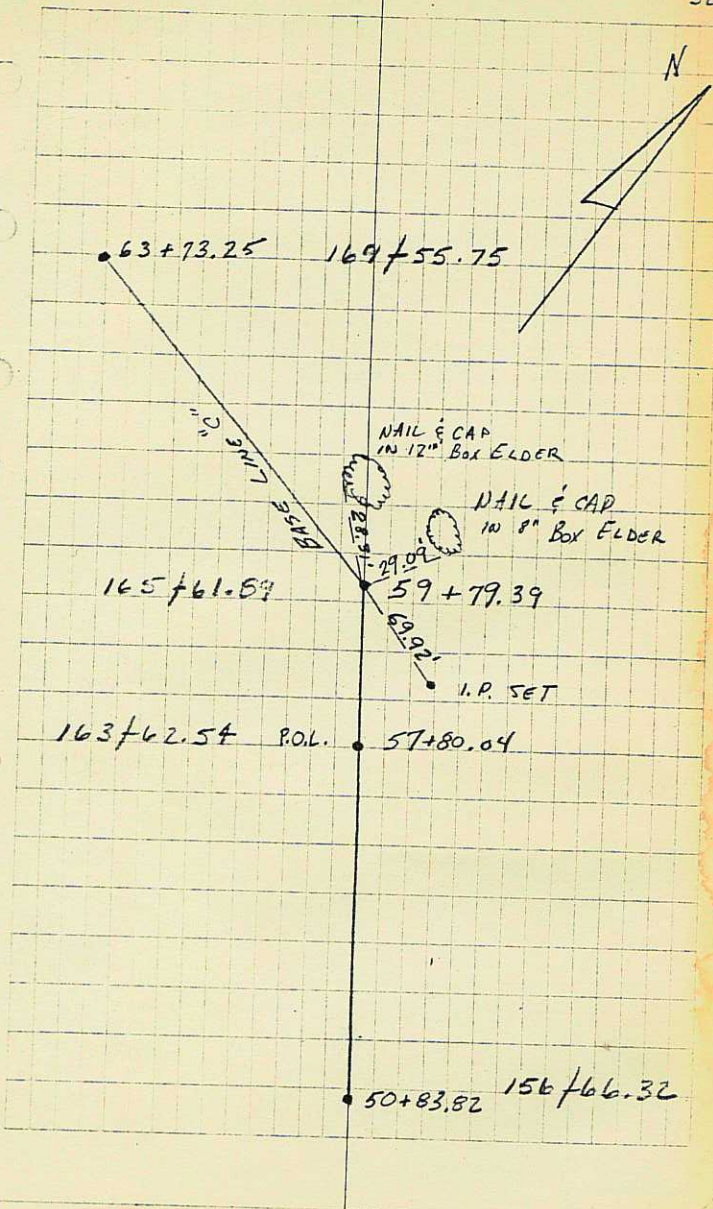 N
63+73.25 169+55.75
BASE LINE "C"
NAIL & CAP
IN 12" BOX ELDER
NAIL & CAP
IN 8" BOX ELDER
29.09'
165+61.89 59+79.39
69.92'
I.P. SET
163+62.54 P.O.L. 57+80.04
50+83.82 156+66.32